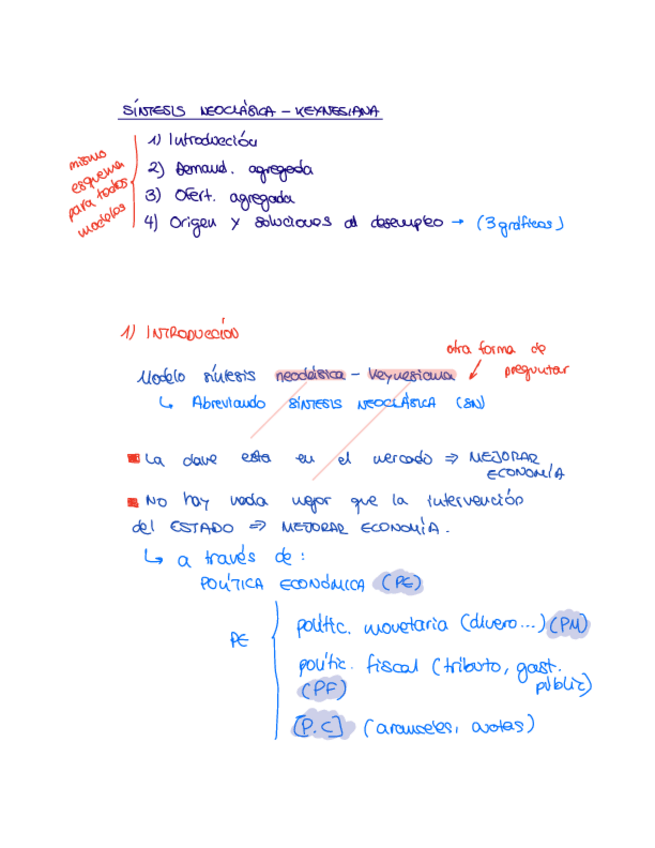 SÍNTESIS NEOCLÁSICA - KEYNESIANA
mismo
esquema
para todos
modelos
1) Introducción
2) Demand. agregada
3) Ofert. agregada
4) Origen y soluciones al desempleo → (3 gráficas)
1) INTRODUCCIÓN
otra forma de
preguntar
Modelo síntesis neoclásica - Keynesiana
↳ Abreviando SÍNTESIS NEOCLÁSICA (SN)
La clave esta en el mercado ⇒ MEJORAR
ECONOMÍA
No hay nada mejor que la intervención
del ESTADO ⇒ MEJORAR ECONOMÍA.
↳ a través de:
POLÍTICA ECONÓMICA (PE)
PE
polític. monetaria (dinero...) (PM)
polític. fiscal (tributo, gast.
públic)
(PF)
[P.C] (aranceles, cuotas)